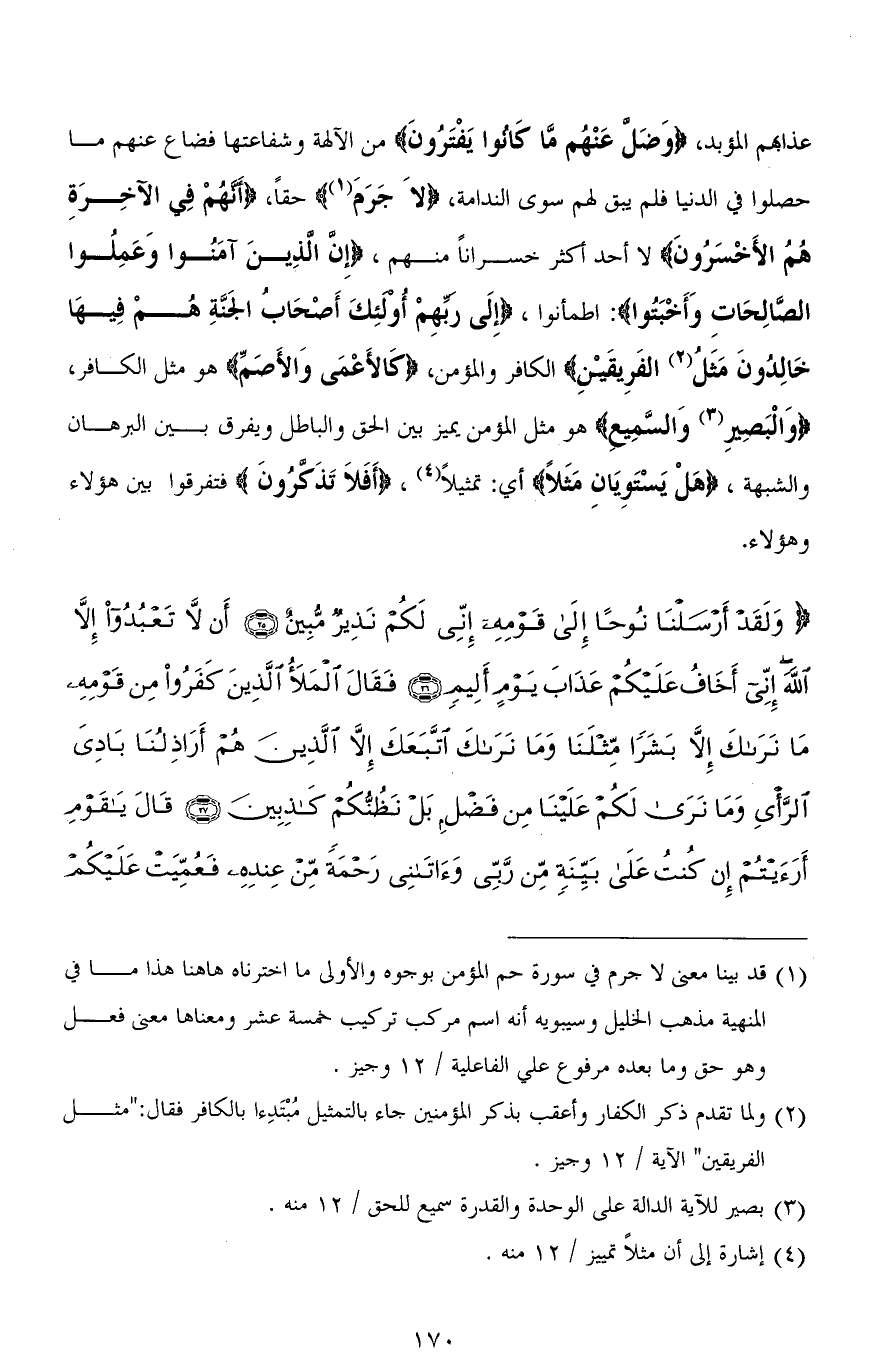 عذابهم المؤبد، ﴿وَضَلَّ عَنْهُم مَّا كَانُوا يَفْتَرُونَ﴾ من الآلهة وشفاعتها فضاع عنهم ما
حصلوا في الدنيا فلم يبق لهم سوى الندامة، ﴿لاَ جَرَمَ(١)﴾ حقاً، ﴿أَنَّهُمْ فِي الآخِرَةِ
هُمُ الأَخْسَرُونَ﴾ لا أحد أكثر خسراناً منهم ، ﴿إِنَّ الَّذِينَ آمَنُوا وَعَمِلُوا
الصَّالِحَاتِ وَأَخْبَتُوا﴾: اطمأنوا ، ﴿إِلَى رَبِّهِمْ أُوْلَئِكَ أَصْحَابُ الجَنَّةِ هُمْ فِيهَا
خَالِدُونَ مَثَلُ(٢) الفَرِيقَيْنِ﴾ الكافر والمؤمن، ﴿كَالأَعْمَى وَالأَصَمِّ﴾ هو مثل الكافر،
﴿وَالْبَصِيرِ(٣) وَالسَّمِيعِ﴾ هو مثل المؤمن يميز بين الحق والباطل ويفرق بين البرهان
والشبهة ، ﴿هَلْ يَسْتَوِيَانِ مَثَلاً﴾ أي: تمثيلاً(٤) ، ﴿أَفَلاَ تَذَكَّرُونَ ﴾ فتفرقوا بين هؤلاء
وهؤلاء.
﴿ وَلَقَدْ أَرْسَلْنَا نُوحًا إِلَىٰ قَوْمِهِۦٓ إِنِّى لَكُمْ نَذِيرٌ مُّبِينٌ ٢٥ أَن لَّا تَعْبُدُوٓا۟ إِلَّا
ٱللَّهَ ۖ إِنِّىٓ أَخَافُ عَلَيْكُمْ عَذَابَ يَوْمٍ أَلِيمٍ ٢٦ فَقَالَ ٱلْمَلَأُ ٱلَّذِينَ كَفَرُوا۟ مِن قَوْمِهِۦ
مَا نَرَىٰكَ إِلَّا بَشَرًا مِّثْلَنَا وَمَا نَرَىٰكَ ٱتَّبَعَكَ إِلَّا ٱلَّذِينَ هُمْ أَرَاذِلُنَا بَادِىَ
ٱلرَّأْىِ وَمَا نَرَىٰ لَكُمْ عَلَيْنَا مِن فَضْلٍ بَلْ نَظُنُّكُمْ كَٰذِبِينَ ٢٧ قَالَ يَٰقَوْمِ
أَرَءَيْتُمْ إِن كُنتُ عَلَىٰ بَيِّنَةٍ مِّن رَّبِّى وَءَاتَىٰنِى رَحْمَةً مِّنْ عِندِهِۦ فَعُمِّيَتْ عَلَيْكُمْ
(١) قد بينا معنى لا جرم في سورة حم المؤمن بوجوه والأولى ما اخترناه هاهنا هذا ما في
المنهية مذهب الخليل وسيبويه أنه اسم مركب تركيب خمسة عشر ومعناها معنى فعل
وهو حق وما بعده مرفوع علي الفاعلية / ١٢ وجيز .
(٢) ولما تقدم ذكر الكفار وأعقب بذكر المؤمنين جاء بالتمثيل مُبْتَدِءا بالكافر فقال:"مثل
الفريقين" الآية / ١٢ وجيز .
(٣) بصير للآية الدالة على الوحدة والقدرة سميع للحق / ١٢ منه .
(٤) إشارة إلى أن مثلاً تمييز / ١٢ منه .
١٧٠